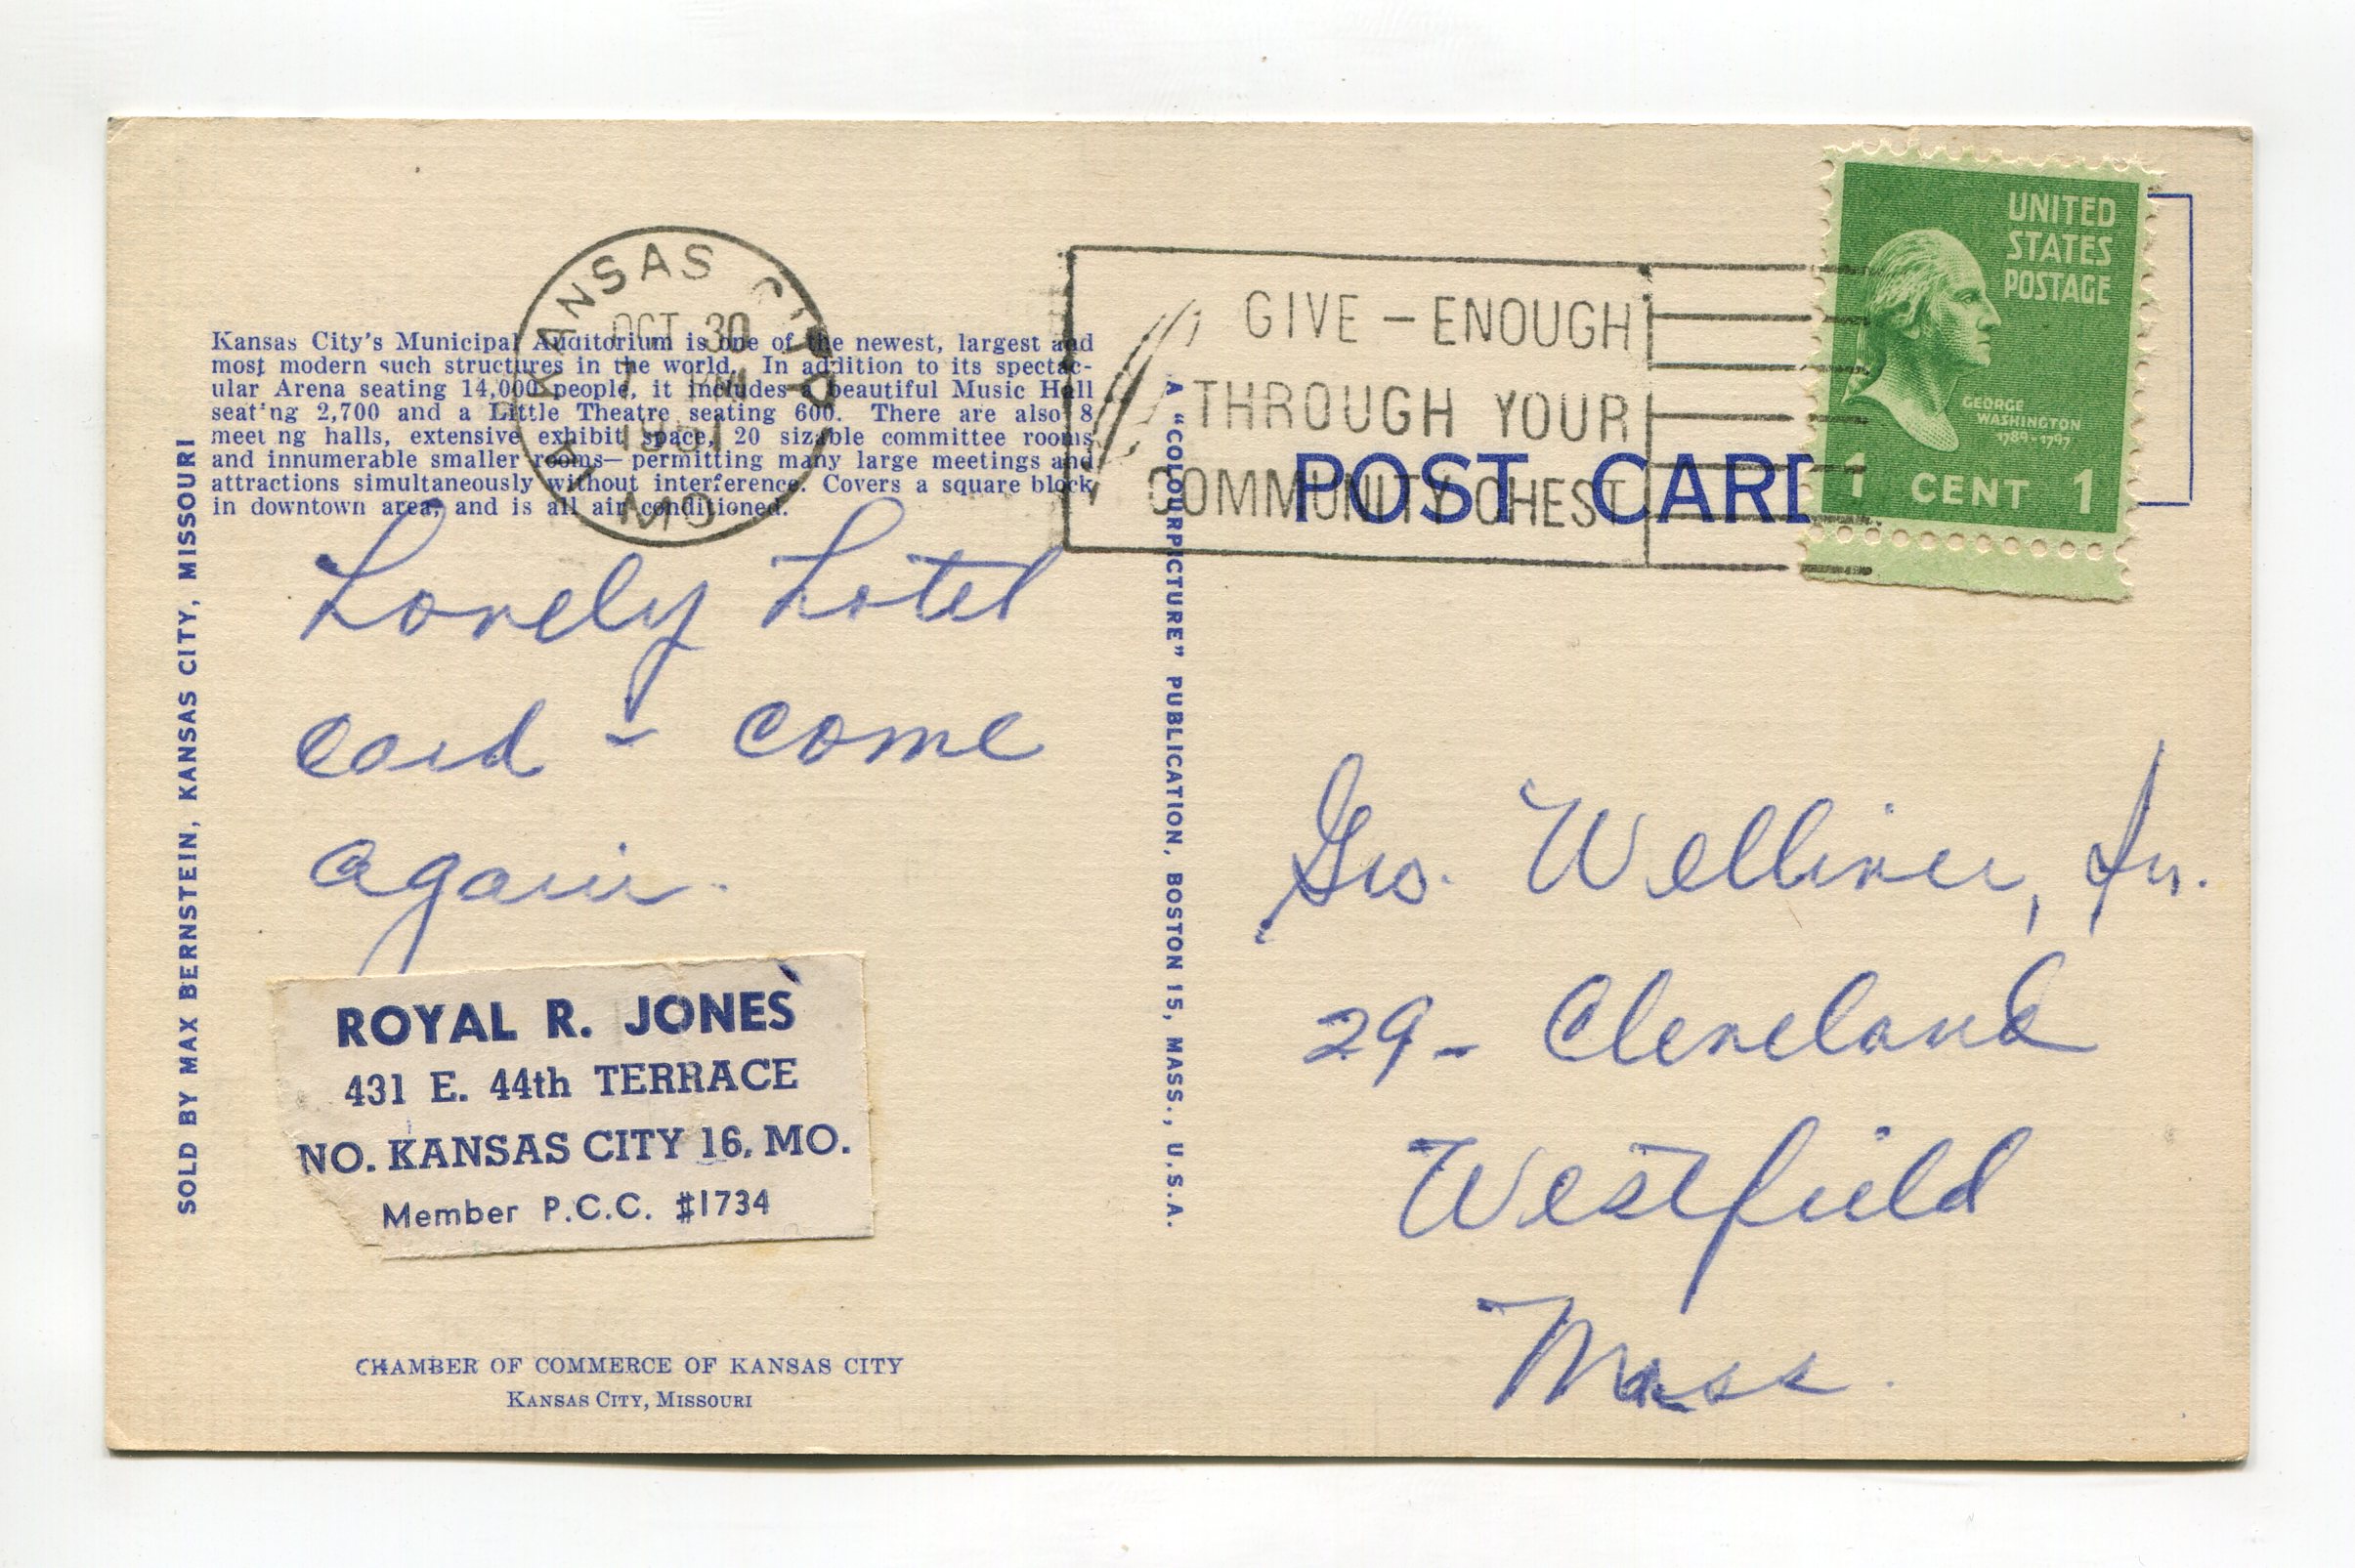 KANSAS CITY
OCT 30
1951
MO.
GIVE – ENOUGH
THROUGH YOUR
COMMUNITY CHEST
UNITED
STATES
POSTAGE
GEORGE
WASHINGTON
1789-1797
1 CENT 1
Kansas City's Municipal Auditorium is one of the newest, largest and
most modern such structures in the world. In addition to its spectac-
ular Arena seating 14,000 people, it includes a beautiful Music Hall
seating 2,700 and a Little Theatre seating 600. There are also 8
meeting halls, extensive exhibit space, 20 sizable committee rooms
and innumerable smaller rooms— permitting many large meetings and
attractions simultaneously without interference. Covers a square block
in downtown area, and is all air conditioned.
POST CARD
SOLD BY MAX BERNSTEIN, KANSAS CITY, MISSOURI
Lovely hotel
card - come
again.
ROYAL R. JONES
431 E. 44th TERRACE
NO. KANSAS CITY 16, MO.
Member P.C.C. #1734
CHAMBER OF COMMERCE OF KANSAS CITY
KANSAS CITY, MISSOURI
A "COLOURPICTURE" PUBLICATION, BOSTON 15, MASS., U.S.A.
Geo. , Jr.
29 - Cleveland
Westfield
Mass.